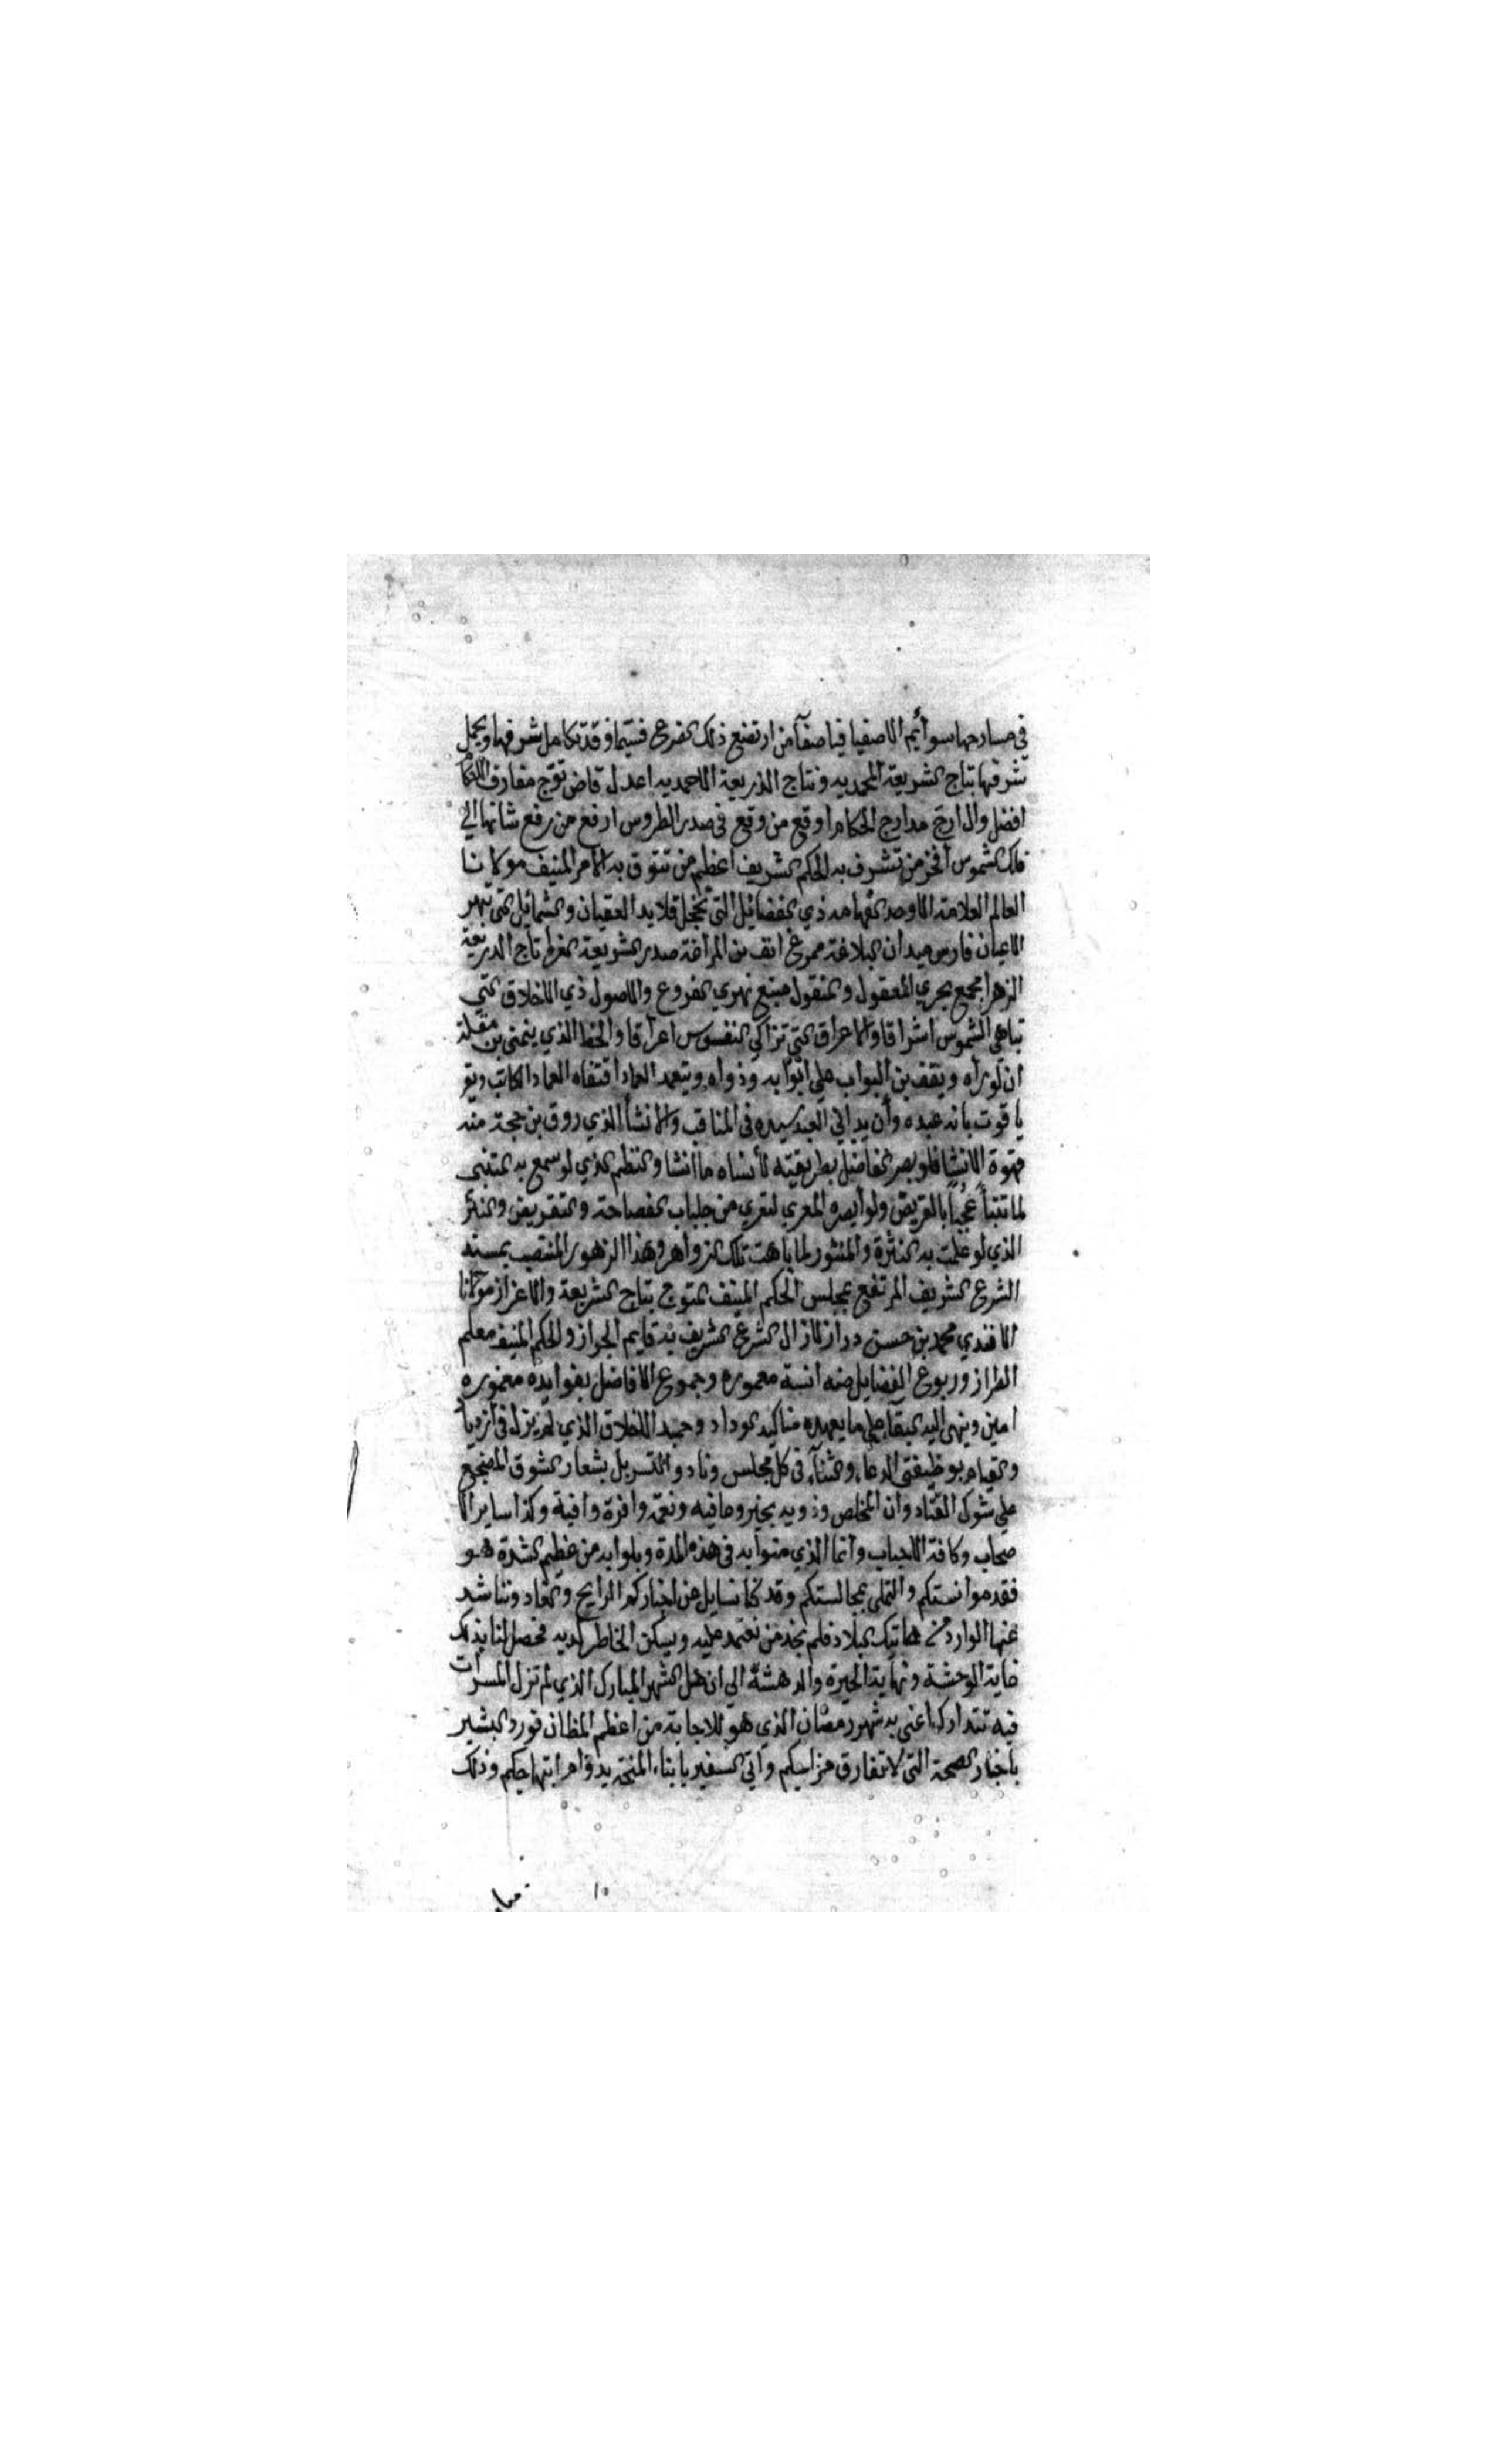 في مسارحها سوأيم الاصفيا فيا صفآ من ارتضع ذلك الفرع فسيما وقد تكامل شرفها وتجمل
شرفها بتاج الشريعة المحمديه ونتاج الذريعة الاحمديه اعدل قاض توّج مفارق الاحكام
افضل وال ارتج مدارج الحكام اوقع من وقع في صدر الطروس ارفع من رفع شانها الي
فلك الشموس افخر من تشرف به الحكم الشريف اعظم من تتوق به الامر المنيف مولانا
العالم العلامة الاوحد الفهامه ذي الفضائل التي تخجل قلايد العقيان والشمائل التي تبهر
الاعيان فارس ميدان البلاغة ممرغ انف بن المراغة صدر الشريعة الغرا تاج الذريعة
الزهرا مجمع بحري المعقول والمنقول منبع نهري الفروع والاصول ذي الاخلاق التي
تباهي الشموس اشراقا والاعراق التي تزاكي النفوس اعراقا والخط الذي يتمني بن مقلة
ان لو رآه ويقف بن البواب علي ابوابه وذراه ويتعمد العماد اقتفاه العماد الكاتب ويقر
ياقوت بانه عبده وأن يداني العبد سيده في المناقب والانشأ الذي روق بن حجة منه
قهوة الانشا فلو بصر الفاضل بطريقته لأنساه ما أنشا والنظم الذي لو سمع به المتنبي
لما تنبأ عجباً بالقريض ولو أبصره المعري لتعري من جلباب الفصاحة والتقريض والنثر
الذي لو علمت به النثرة والمنثور لما باهت تلك الزواهر وهذا الزهور المنتصب بمسند
الشرع الشريف المرتفع بمجلس الحكم المنيف المتوج بتاج الشريعة والاعزاز مولانا
الافندي محمد بن حسن دراز لازال الشرع الشريف به قايم الجواز والحكم المنيف معلم
الطراز وربوع الفضايل منه انسة معموره وجموع الافاضل بفوايده مغموره
امين وينهي اليه البقآء علي ما يعهده من اكيد الوداد وحميد الاخلاق الذي لم يزل في ازدياد
والقيام بوظيفتي الدعاء والثنآء في كل مجلس وناد والتسربل بشعار الشوق المضجع
علي شوك القتاد وان المخلص وذويه بخير وعافيه ونعمة وافرة وافية وكذا ساير الا
صحاب وكافة الاحباب وانما الذي منوا به في هذه المدة وبلوا به من عظيم الشدة هو
فقد موانستكم والتملي بمجالستكم وقد كنا نسايل عن اخباركم الرايح والغاد ونناشد
عنها الوارد من هاتيك البلاد فلم نجد من نعتمد عليه ويسكن الخاطر لديه فحصل لنا بذلك
غاية الوحشة ونهاية الحيرة والدهشة الي ان هل الشهر المبارك الذي لم تزل المسرات
فيه تتدارك اعني به شهر رمضان الذي هو للاجابة من اعظم المظان فورد البشير
باخبار الصحة التي لا تفارق مزاجكم واتي السفير بابناء المنحة بدوام ابتهاجكم وذلك
١٠